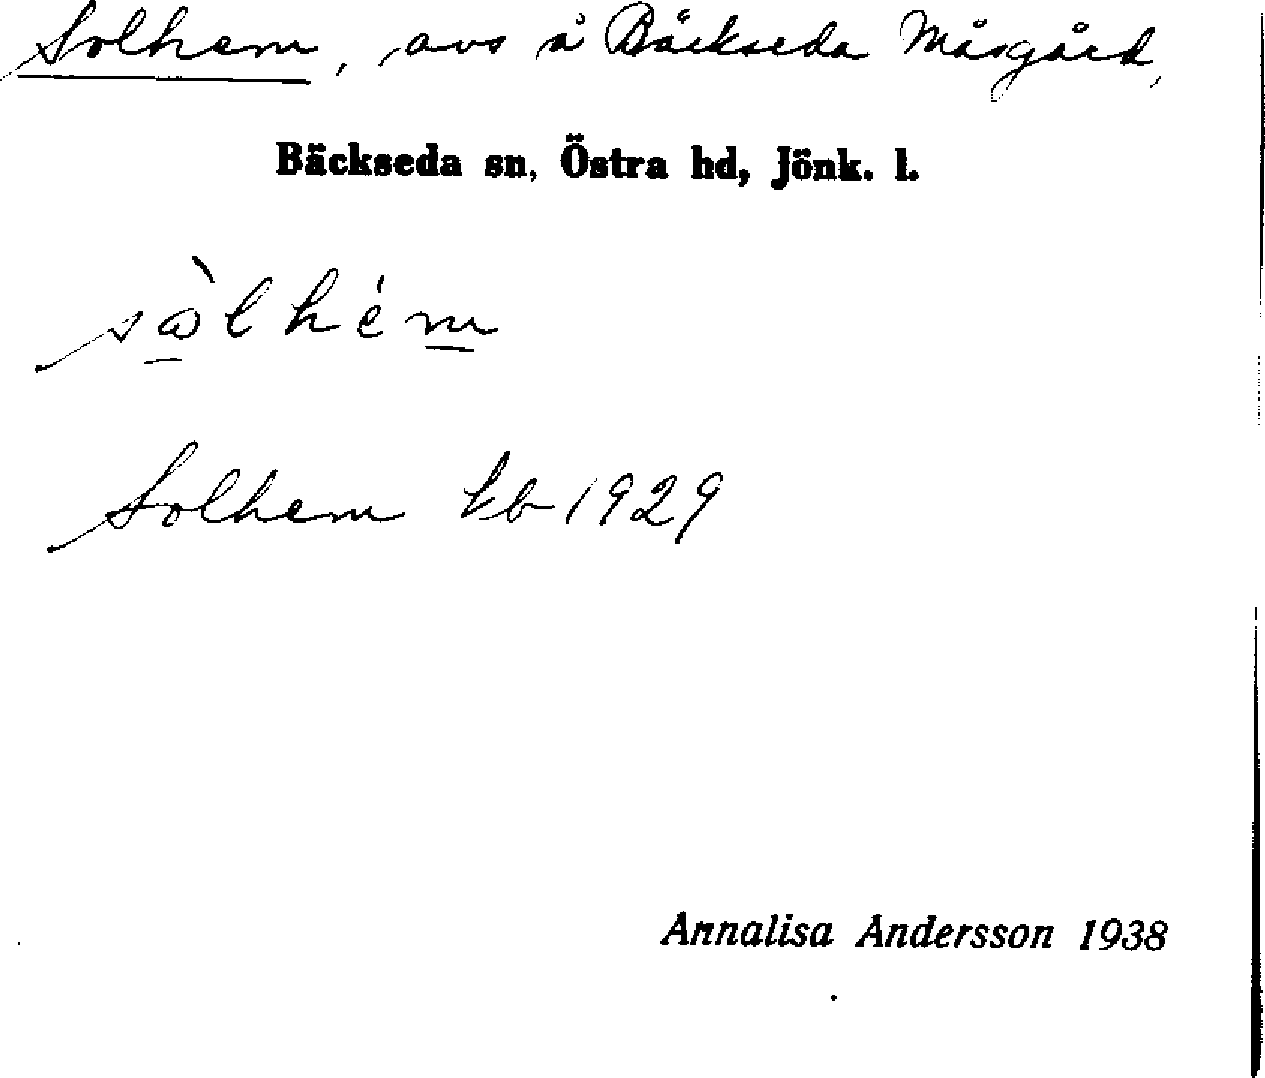 Solhem, avs å Bäckseda Måsgård,
Bäckseda sn, Östra hd, Jönk. l.
Solhem kb 1929
Annalisa Andersson 1938